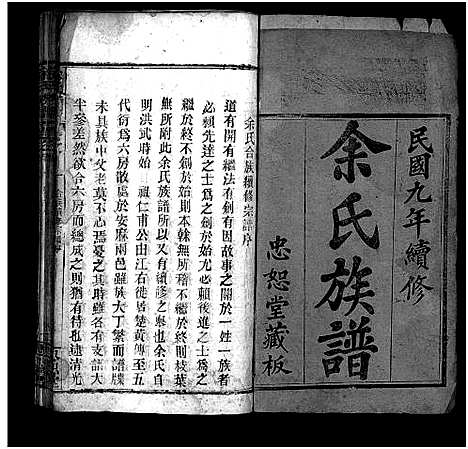 民國九年續修
余氏族譜
忠恕堂藏板
余氏合族續修宗譜序
道有開有繼法有創有因故事之關於一姓一族者
必賴先達之士爲之創於始尤必賴後進之士爲之
繼於終不創於始則本榦無所稽不繼於終則枝葉
無所附此余氏族譜所以又有續修之舉也余氏自
明洪武時始 祖仁甫公由江右徙居楚黄傳至五
代衍爲六房散處於安麻兩邑雖族大丁繁而譜牒
未具族中父老莫不心焉憂之其時雖各有支譜大
半參差然欲合六房而總成之則猶有待也逮清光